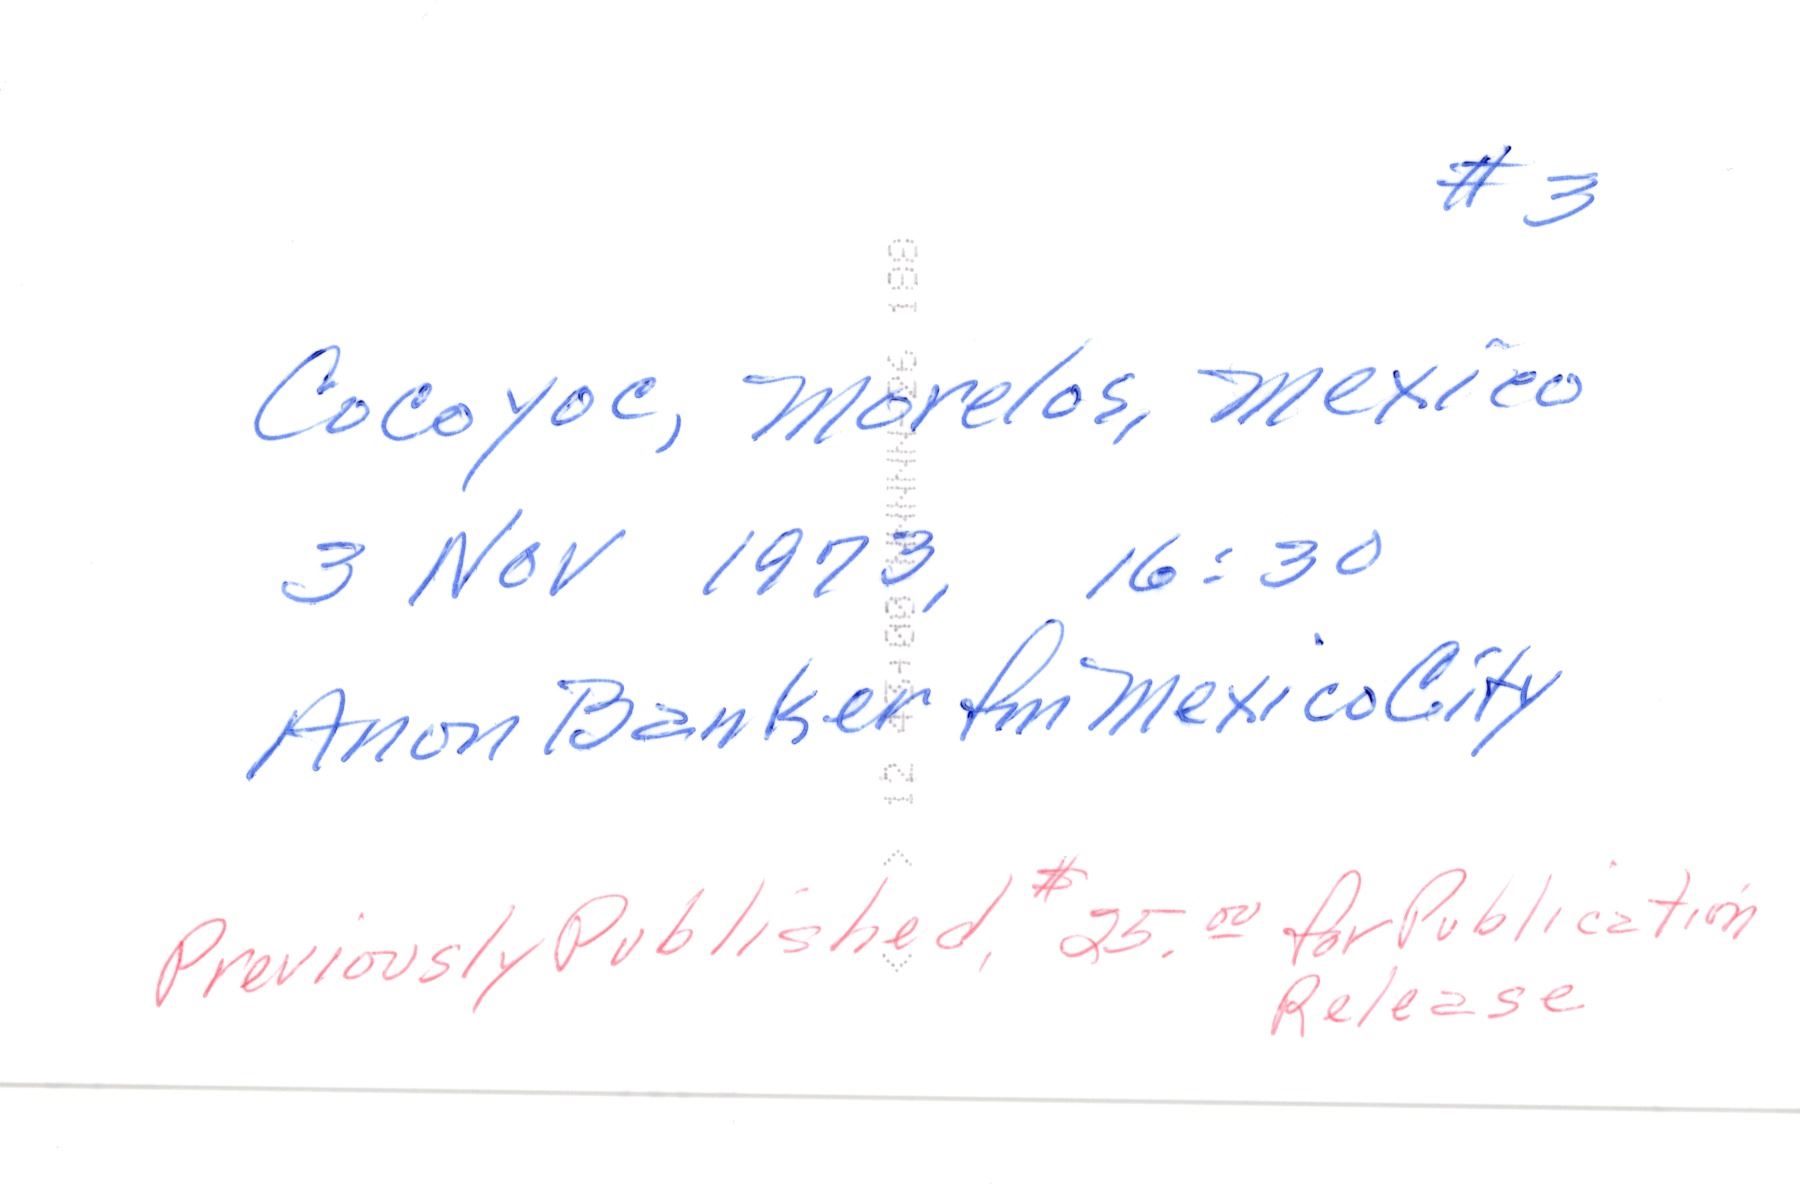 #3
Cocoyoc, Morelos, Mexico
3 Nov 1973, 16:30
Anon Banker fm Mexico City
Previously Published, $25.00 for Publication
Release